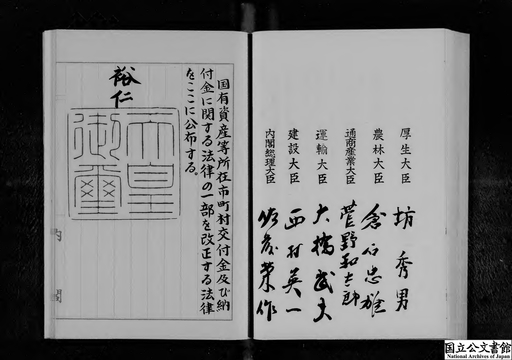 国有資産等所在市町村交付金及び納
付金に関する法律の一部を改正する法律
をここに公布する。
裕仁
天皇
御璽
内閣
厚生大臣 坊秀男
農林大臣 倉石忠雄
通商産業大臣 菅野和太郎
運輸大臣 大橋武夫
建設大臣 西村英一
内閣総理大臣 佐藤榮作
国立公文書館
National Archives of Japan